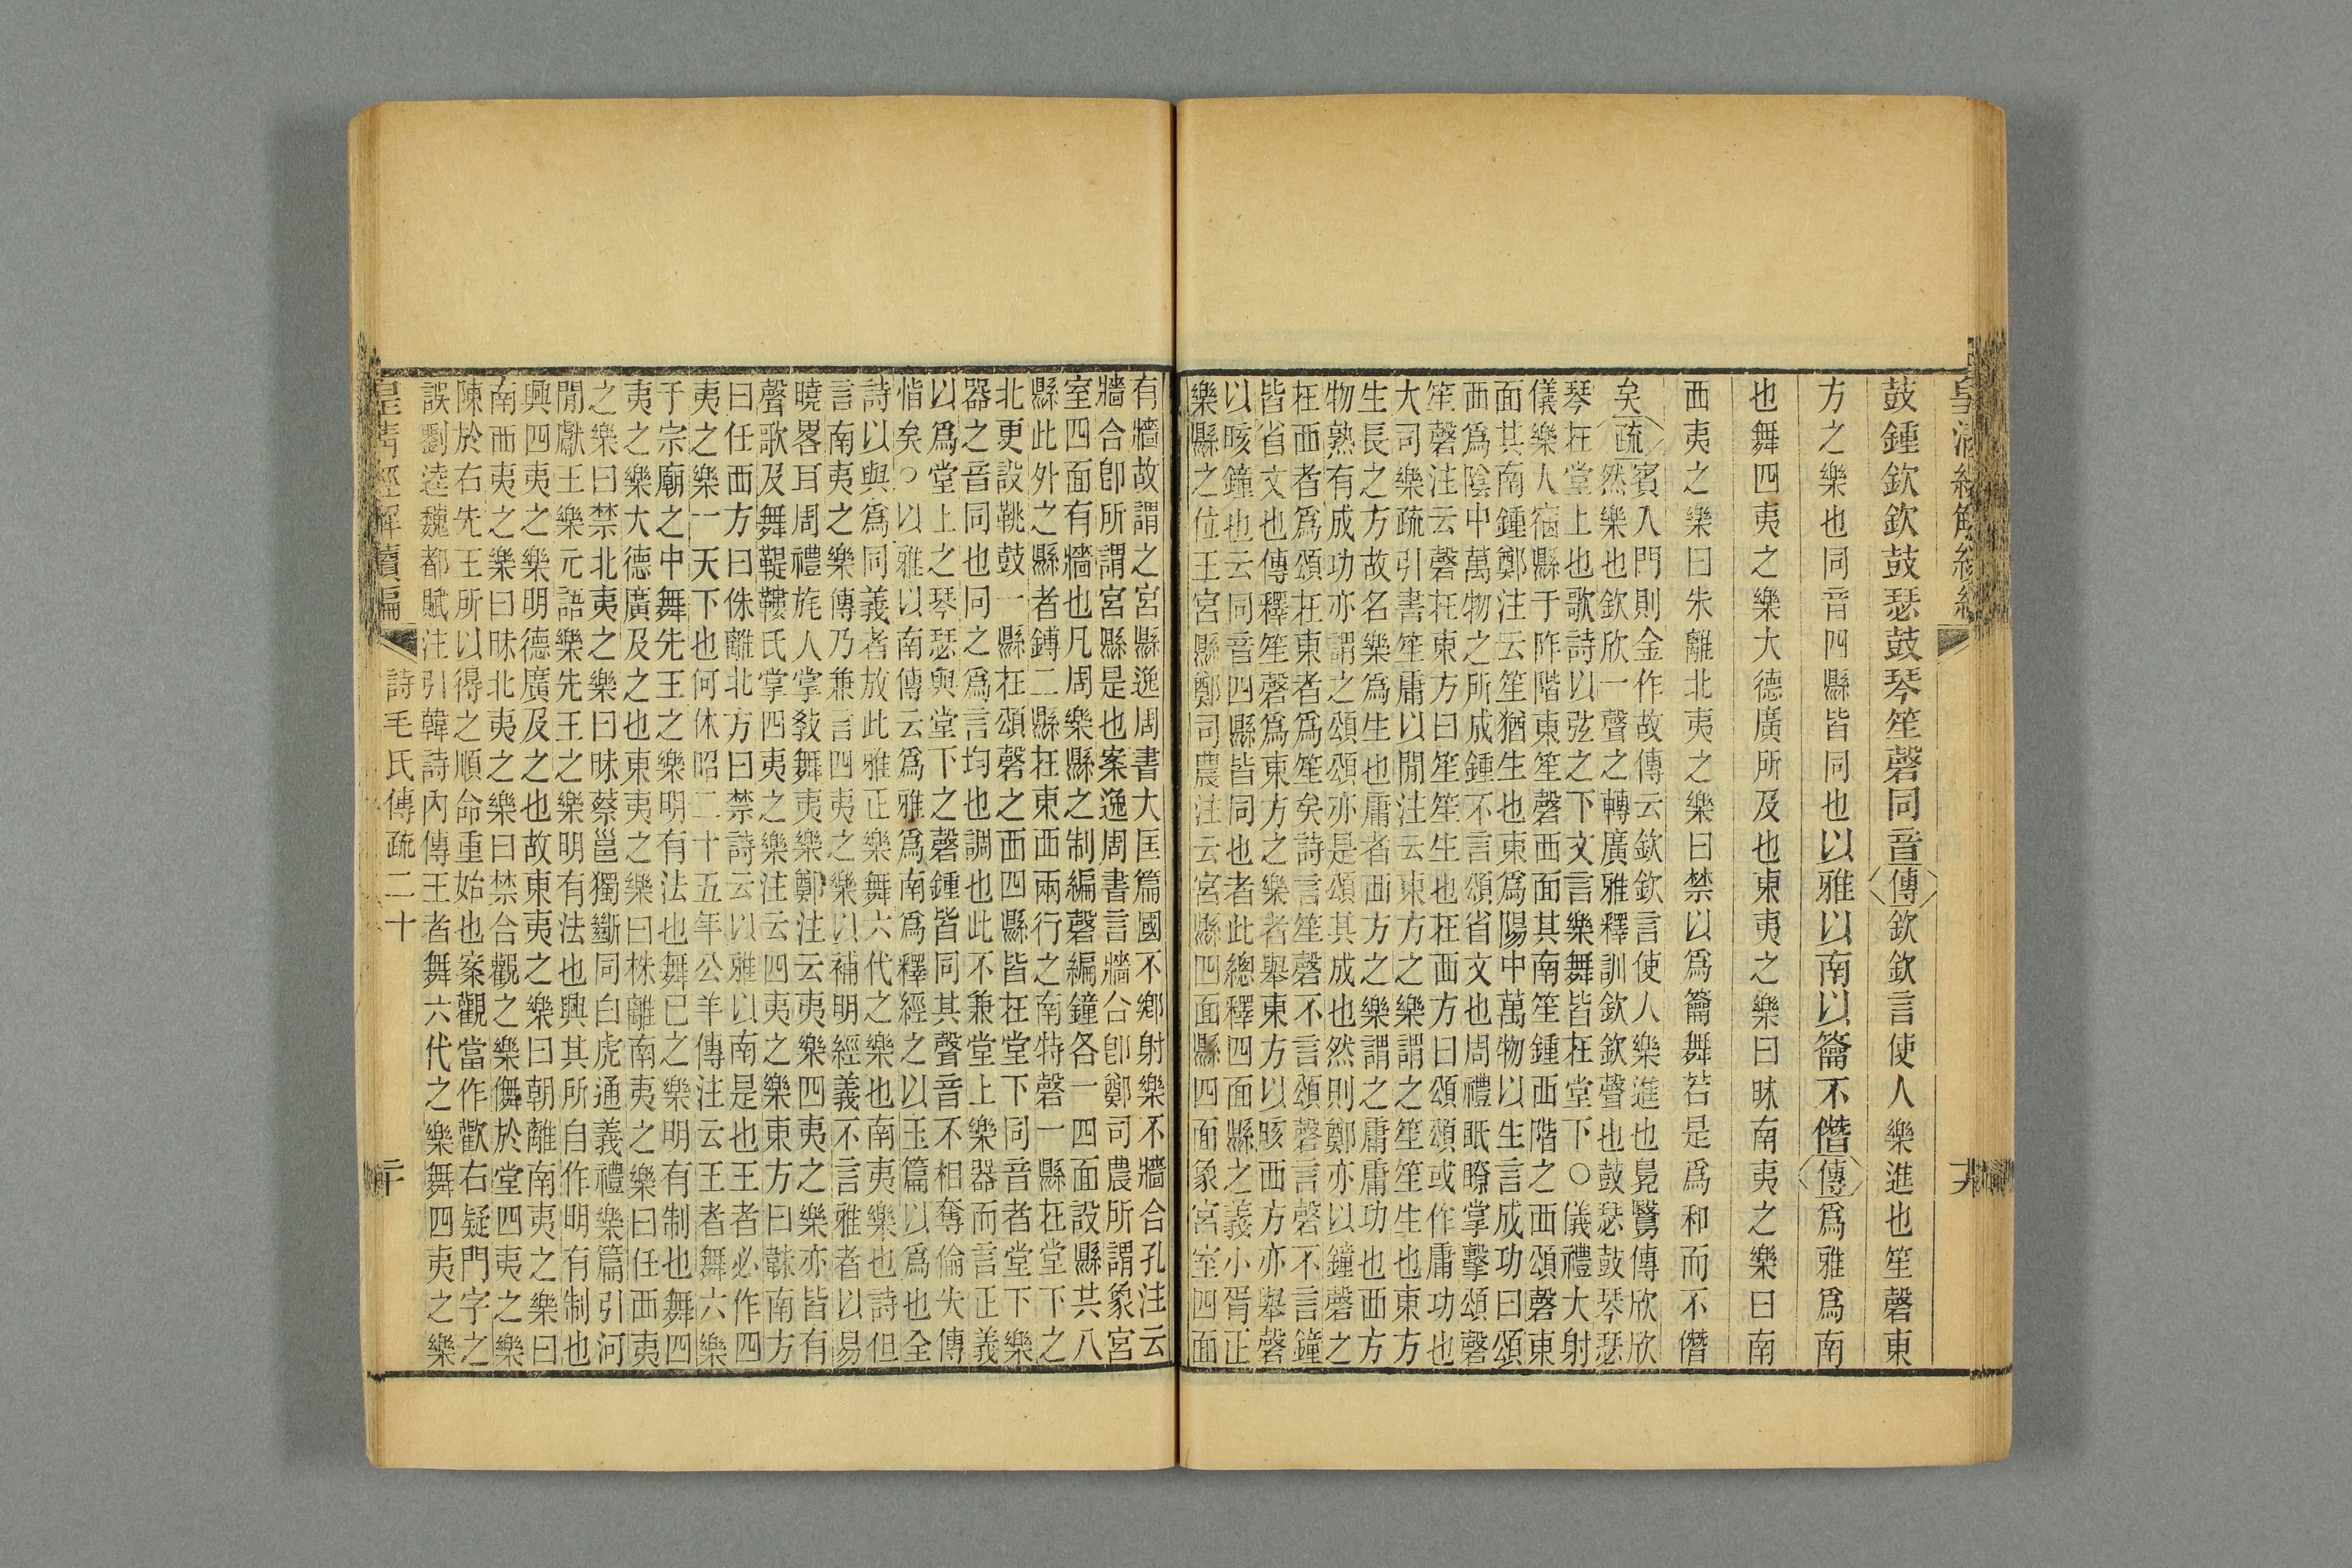 皇清經解續編
十九
鼓鍾欽欽鼓瑟鼓琴笙磬同音傳欽欽言使人樂進也笙磬東
方之樂也同音四縣皆同也以雅以南以籥不僭傳爲雅爲南
也舞四夷之樂大德廣所及也東夷之樂曰昧南夷之樂曰南
西夷之樂曰朱離北夷之樂曰禁以爲籥舞若是爲和而不僭
矣疏賓入門則金作故傳云欽欽言使人樂進也鳧鷖傳欣欣
然樂也欽欣一聲之轉廣雅釋訓欽欽聲也鼓瑟鼓琴瑟
琴在堂上也歌詩以弦之下文言樂舞皆在堂下○儀禮大射
儀樂人宿縣于阼階東笙磬西面其南笙鍾西階之西頌磬東
面其南鍾鄭注云笙猶生也東爲陽中萬物以生言成功曰頌
西爲陰中萬物之所成鍾不言頌省文也周禮眡瞭掌擊頌磬
笙磬注云磬在東方曰笙笙生也在西方曰頌頌或作庸功也
大司樂疏引書笙庸以閒注云東方之樂謂之笙笙生也東方
生長之方故名樂爲生也庸者西方之樂謂之庸庸功也西方
物熟有成功亦謂之頌頌亦是頌其成也然則鄭亦以鐘磬之
在西者爲頌在東者爲笙矣詩言笙磬不言頌磬言磬不言鐘
皆省文也傳釋笙磬爲東方之樂者舉東方以晐西方亦舉磬
以晐鐘也云同音四縣皆同也者此總釋四面縣之義小胥正
樂縣之位王宮縣鄭司農注云宮縣四面縣四面象宮室四面
有牆故謂之宮縣逸周書大匡篇國不鄉射樂不牆合孔注云
牆合卽所謂宮縣是也案逸周書言牆合卽鄭司農所謂象宮
室四面有牆也凡周樂縣之制編磬編鐘各一四面設縣共八
縣此外之縣者鎛二縣在東西兩行之南特磬一縣在堂下之
北更設鼗鼓一縣在頌磬之西四縣皆在堂下同音者堂下樂
器之音同也同之爲言均也調也此不兼堂上樂器而言正義
以爲堂上之琴瑟與堂下之磬鍾皆同其聲音不相奪倫失傳
恉矣○以雅以南傳云爲雅爲南爲釋經之以玉篇以爲也全
詩以與爲同義者放此雅正樂舞六代之樂也南夷樂也詩但
言南夷之樂傳乃兼言四夷之樂以補明經義不言雅者以易
曉畧耳周禮旄人掌敎舞夷樂鄭注云夷樂四夷之樂亦皆有
聲歌及舞鞮鞻氏掌四夷之樂注云四夷之樂東方曰韎南方
曰任西方曰侏離北方曰禁詩云以雅以南是也王者必作四
夷之樂一天下也何休昭二十五年公羊傳注云王者舞六樂
于宗廟之中舞先王之樂明有法也舞已之樂明有制也舞四
夷之樂大德廣及之也東夷之樂曰株離南夷之樂曰任西夷
之樂曰禁北夷之樂曰昧蔡邕獨斷同白虎通義禮樂篇引河
閒獻王樂元語樂先王之樂明有法也興其所自作明有制也
興四夷之樂明德廣及之也故東夷之樂曰朝離南夷之樂曰
南西夷之樂曰昧北夷之樂曰禁合觀之樂儛於堂四夷之樂
陳於右先王所以得之順命重始也案觀當作歡右疑門字之
誤劉逵魏都賦注引韓詩內傳王者舞六代之樂舞四夷之樂
皇清經解續編
詩毛氏傳疏二十
二十